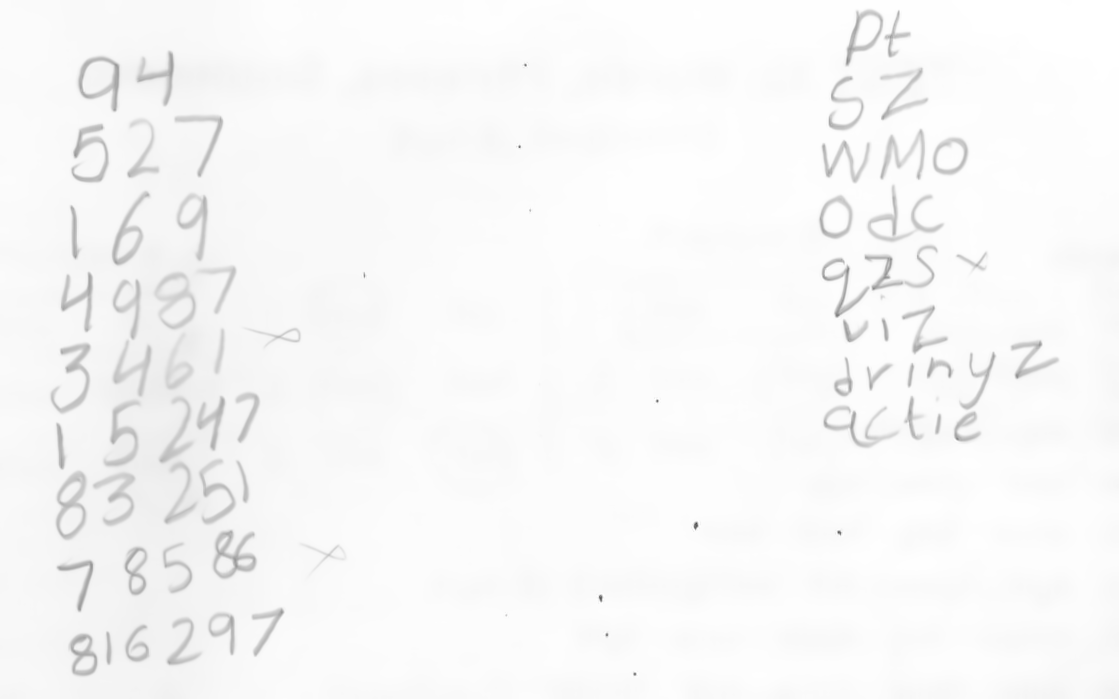 94
527
169
4987
3461
15247
83251
78586
816297
pt
SZ
WMO
Odc
qzs x
viz
drinyz
actie